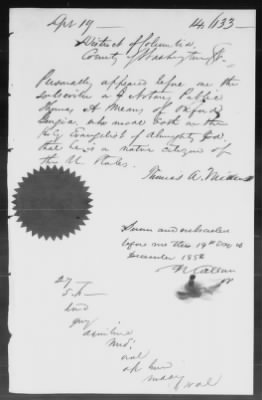 Apr 19 — 14,133 —
District of Columbia,
County of Washington
Personally appeared before me the
subscriber a Notary Public
Thomas A Means of
Georgia, who made oath on the
Holy Evangelist of Almighty God
that he is a native citizen of
the U States.
Thomas A. Means
Sworn and subscribed
before me this 19th day of
December 1856
N Callan
27 —
5.8 —
gray
Med:
oval